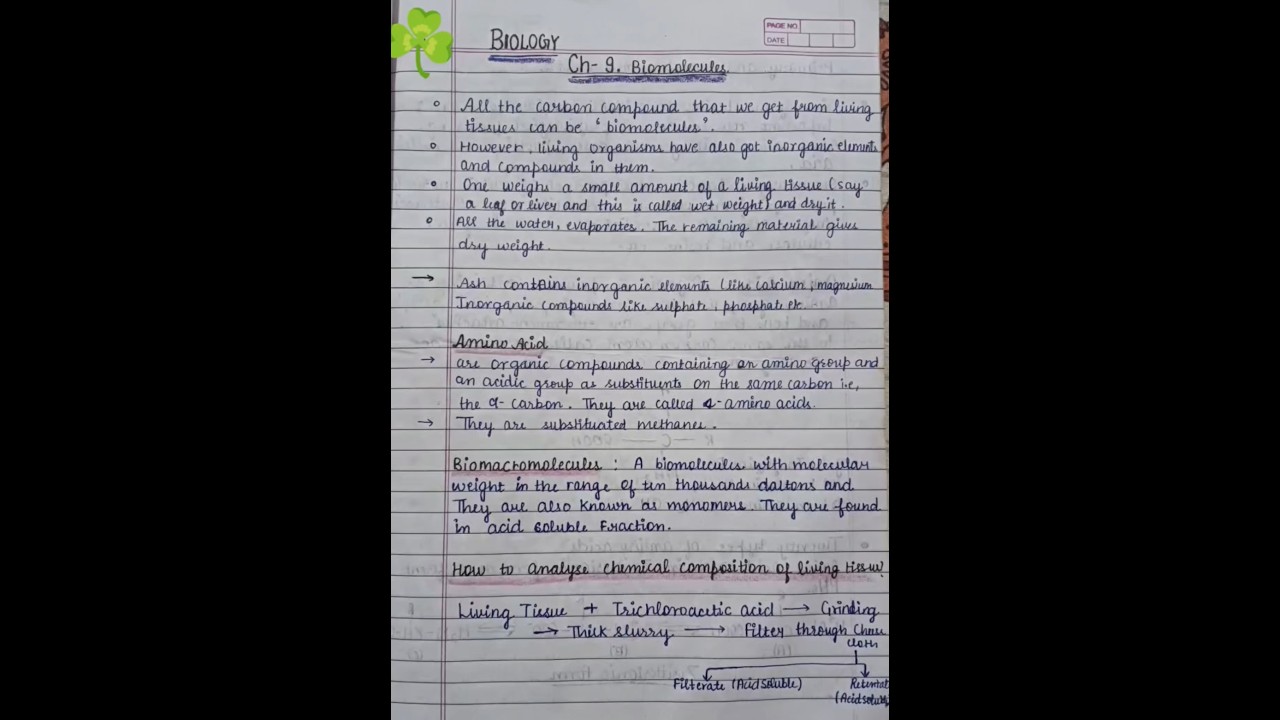 PAGE NO.
DATE
BIOLOGY
Ch- 9. Biomolecules.
All the carbon compound that we get from living
tissues can be 'biomolecules'.
However, living organisms have also got inorganic elements
and compounds in them.
One weighs a small amount of a living tissue (say
a leaf or liver and this is called wet weight) and dry it.
All the water, evaporates. The remaining material gives
dry weight.
→ Ash contains inorganic elements (like calcium, magnesium
Inorganic compounds like sulphate, phosphate etc.
Amino Acid
→ are organic compounds containing an amino group and
an acidic group as substituents on the same carbon i.e,
the α- carbon. They are called α-amino acids.
→ They are substituated methanes.
Biomacromolecules : A biomolecules with molecular
weight in the range of ten thousands daltons and
They are also known as monomers. They are found
in acid soluble Fraction.
How to analyse chemical composition of living tissue?
Living Tissue + Trichloroacetic acid → Grinding
→ Thick slurry → Filter through Cheese
cloth
Filterate (Acid soluble)
(Acid